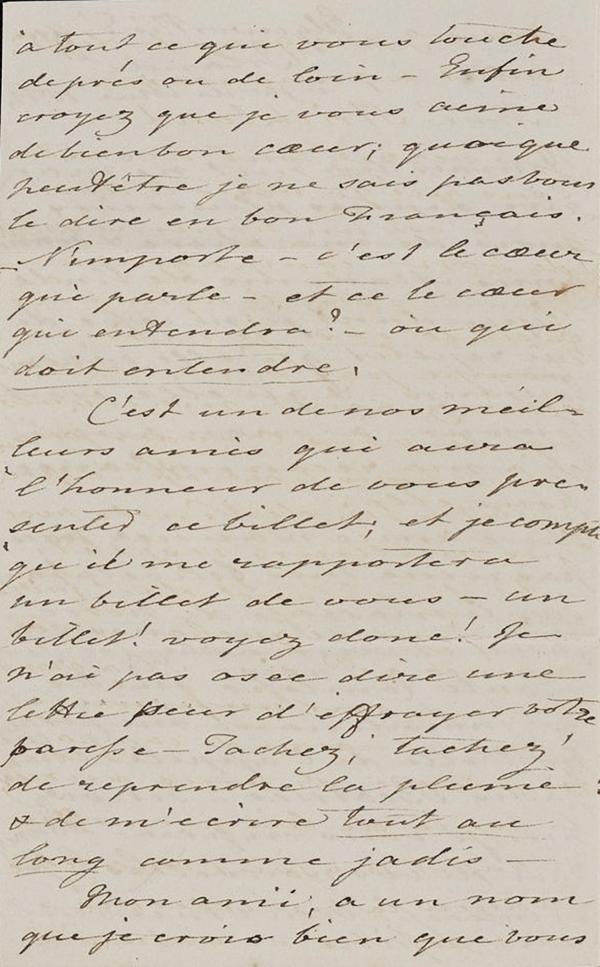 à tout ce qui vous touche
de près ou de loin – Enfin
croyez que je vous aime
de bien bon cœur; quoique
peut être je ne sais pas vous
le dire en bon Français.
– N'importe – c'est le cœur
qui parle – et ce le cœur
qui entendra? – ou qui
doit entendre.
C'est un de nos meil-
leurs amis qui aura
l'honneur de vous pre-
senter ce billet; et je compte
qu'il me rapportera
un billet de vous – un
billet! voyez donc! Je
n'ai pas osee dire une
lettre peur d'effrayer votre
paresse – Tachez, tachez
de reprendre la plume
& de m'ecrire tout au
long comme jadis –
Mon ami, a un nom
que je crois bien que vous